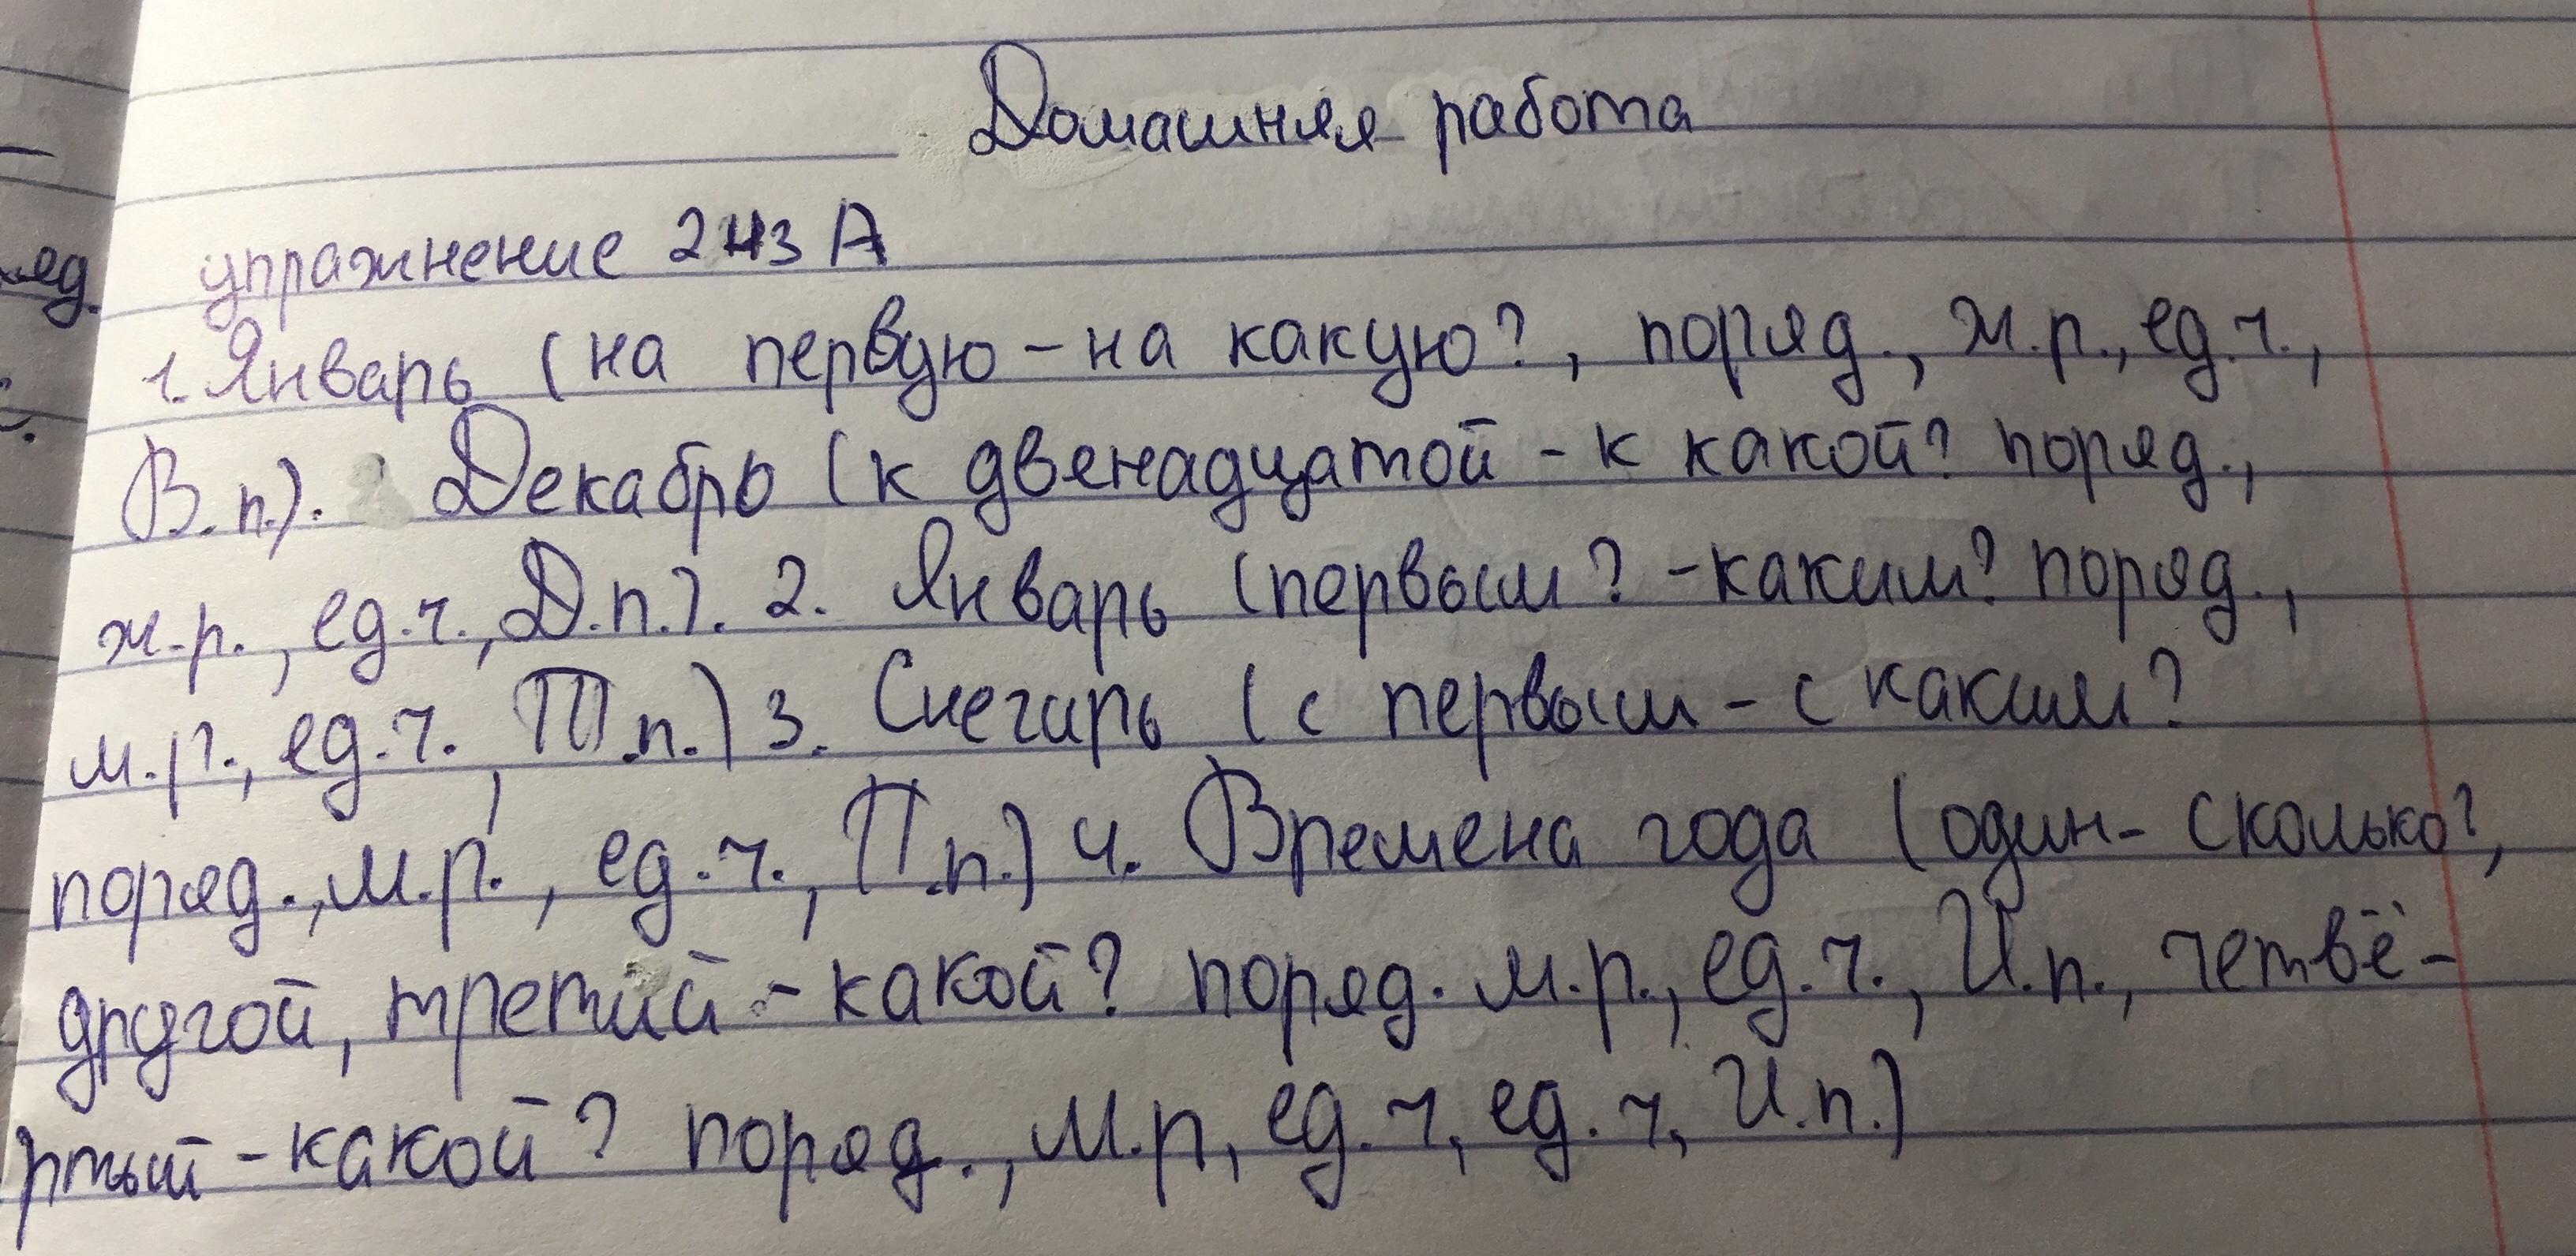 Домашняя работа
яд.
упражнение 243 А
1. Январь (на первую - на какую?, поряд., ж.р., ед.ч.,
В.п.). Декабрь (к двенадцатой - к какой? поряд.,
ж.р., ед.ч., Д.п.). 2. Январь (первым? - каким? поряд.,
м.р., ед.ч., Т.п.) 3. Снегирь (с первым - с каким?
поряд., м.р., ед.ч., П.п.) 4. Времена года (один - сколько?,
другой, третий - какой? поряд. м.р., ед.ч., И.п., четвё-
ртый - какой? поряд., м.р, ед.ч, ед.ч, И.п.)